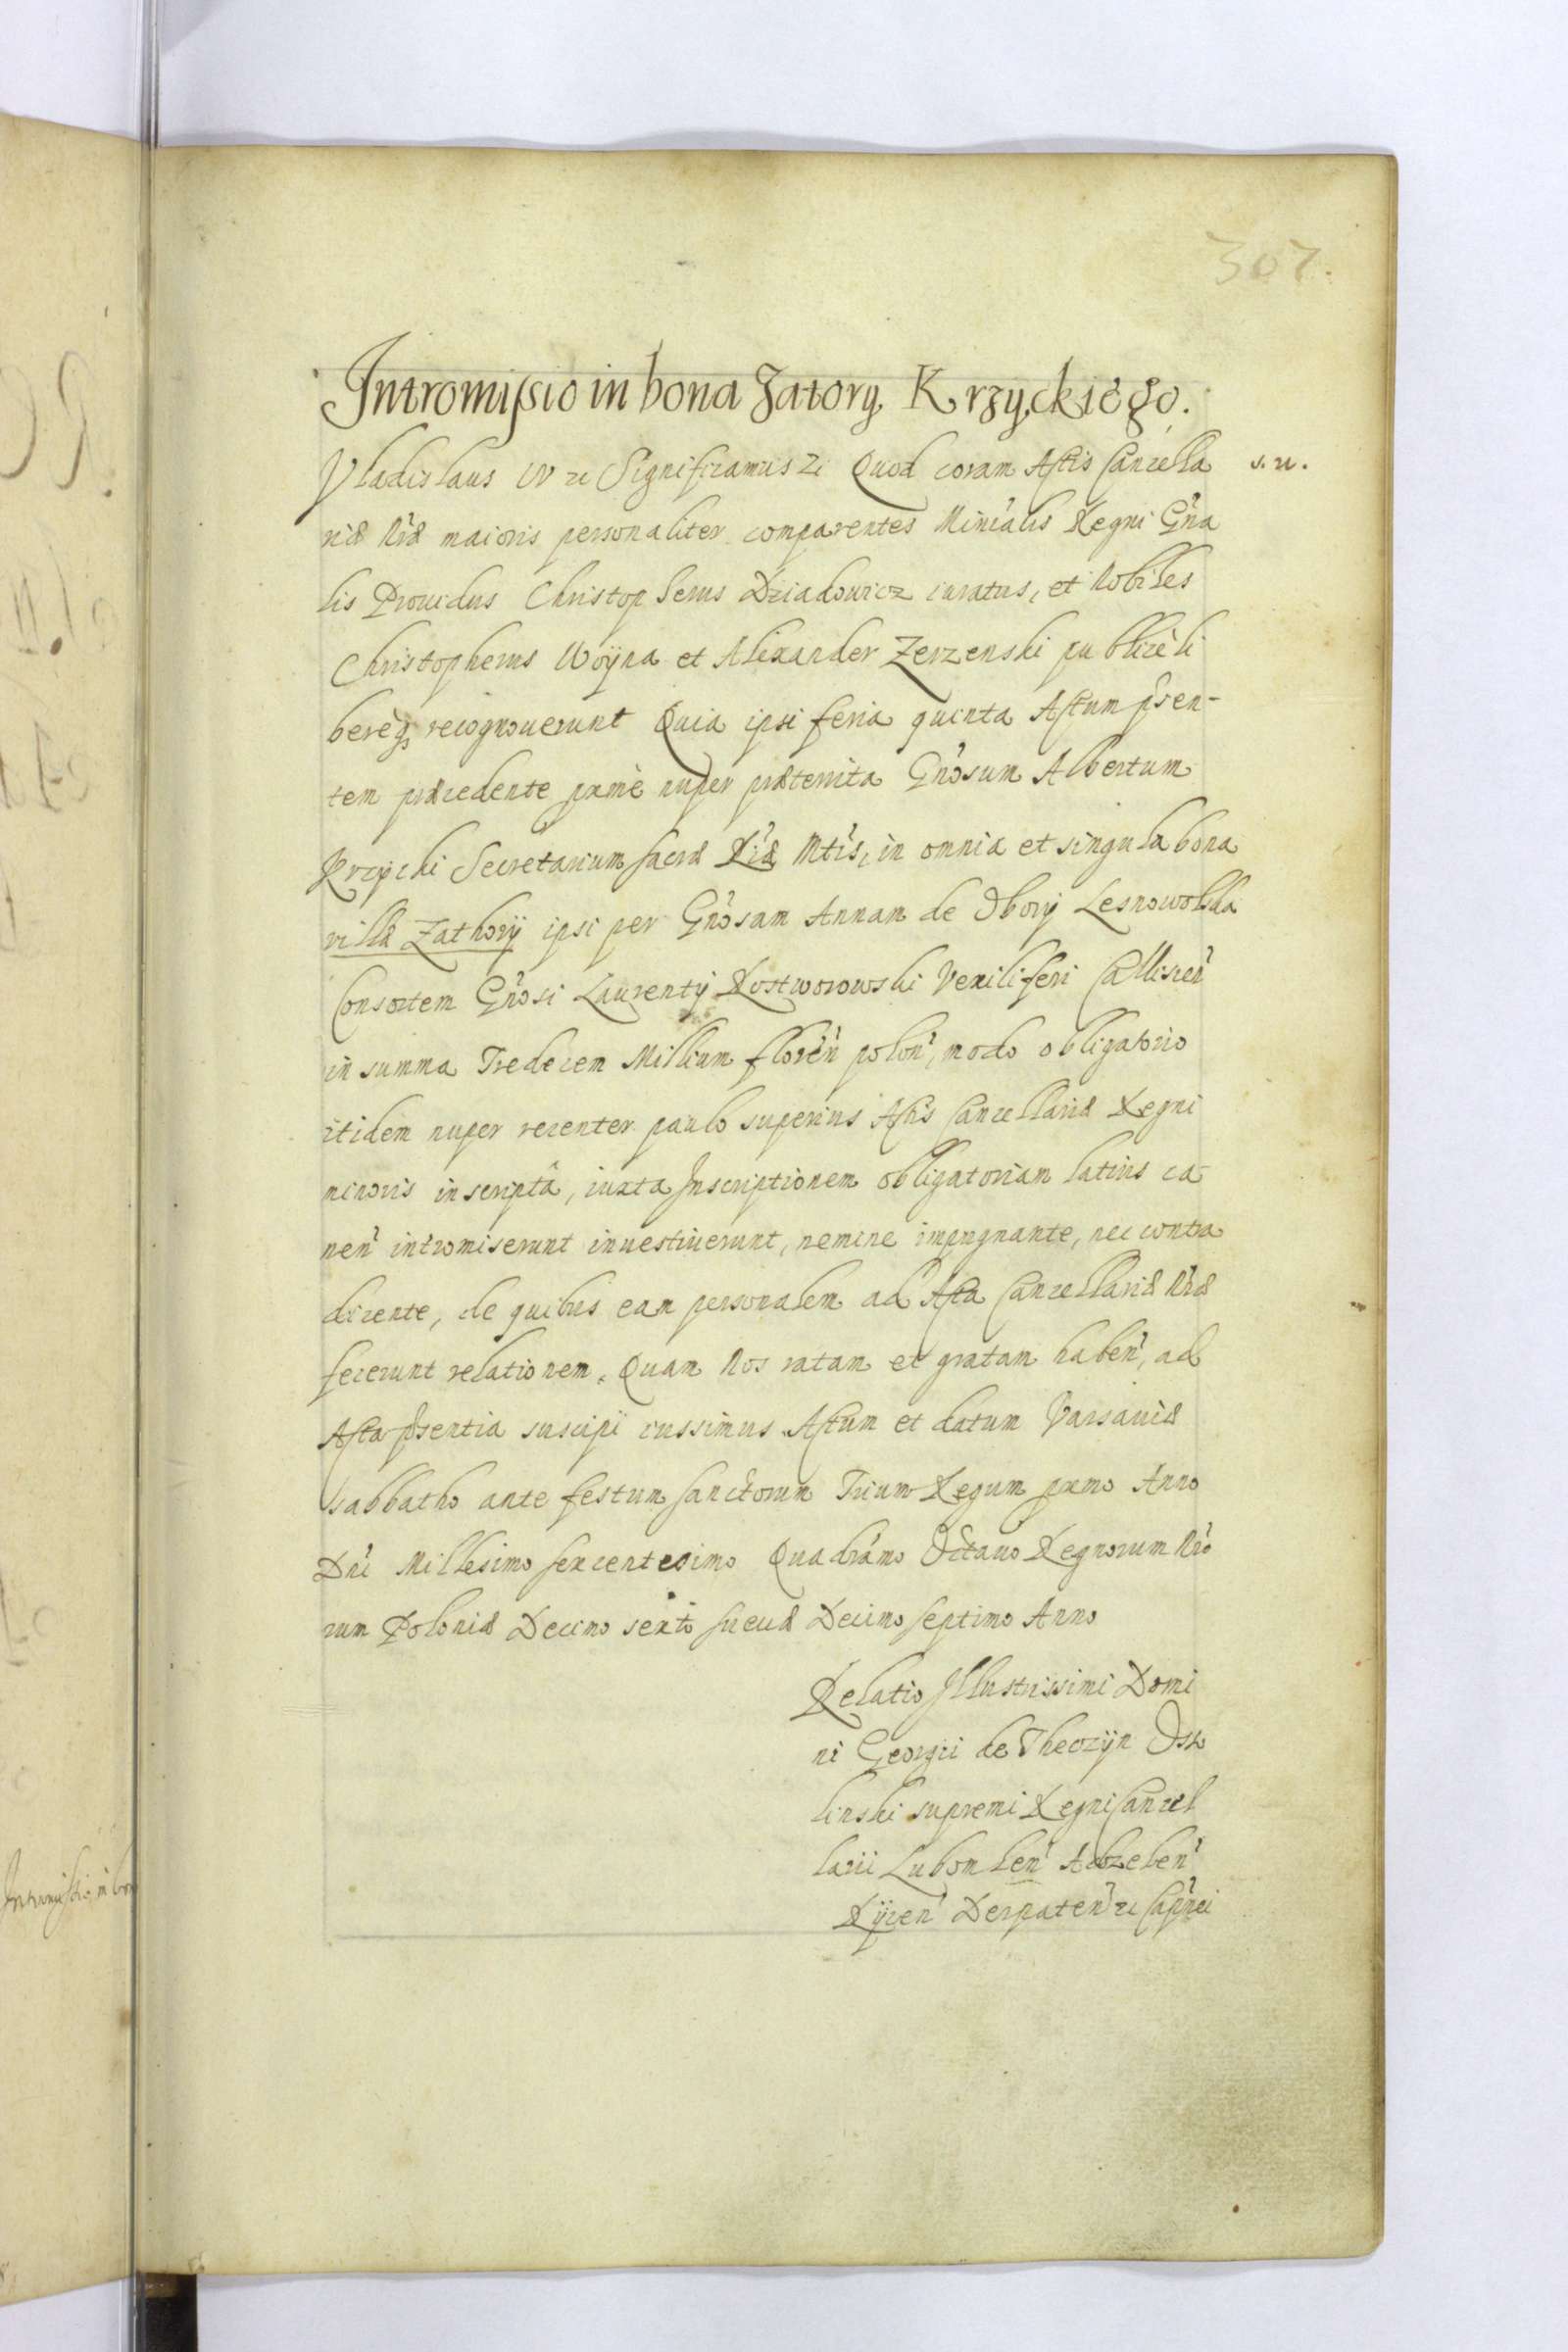 307.
Intromissio in bona Zatory Krzyckiego.
Vladislaus IV zc Significamus zc Quod coram Actis Cancella s. n.
riæ Nræ maioris personaliter comparentes Minialis Regni Gna
lis Prouidus Christopherus Dziadowicz iuratus, et Nobiles
Christopherus Woÿna et Alexander Zerzenski publicè li
bereq3 recognouerunt Quia ipsi feria quinta Actum præsen-
tem præcedente pxmè nuper præterita Gnosum Albertum
Krzycki Secretarium Sacræ Ræ Mtis, in omnia et singula bona
villæ Zathorÿ ipsi per Gnosam Annam de Oborÿ Lesnowolska
Consortem Gnosi Laurentÿ Rostworowski Vexiliferi Callisien
in summa Tredecem Millium floren polon, modo obligatorio
itidem nuper recenter paulo superius Actis Cancellariæ Regni
minoris inscriptâ, iuxta Inscriptionem obligatoriam latius ea
nen intromiserunt inuestiuerunt, nemine impugnante, nec contra
dicente, de quibus eam personalem ad Acta Cancellariæ Nræ
fecerunt relationem. Quam Nos ratam et gratam haben, ad
Acta præsentia suscipi iussimus Actum et datum Varsaviæ
Sabbatho ante festum Sanctorum Trium Regum pxmo Anno
Dni Millesimo Sexcentesimo Quadramo Octavo Regnorum Nro
rum Poloniæ Decimo sexto Sueciæ Decimo Septimo Anno
Relatio Illustrissimi Domi
ni Georgii de Theczÿn Oss
linski supremi Regni Cancel
larii Lubomlen Adzelen
Rÿcen Derpaten zc Capnei